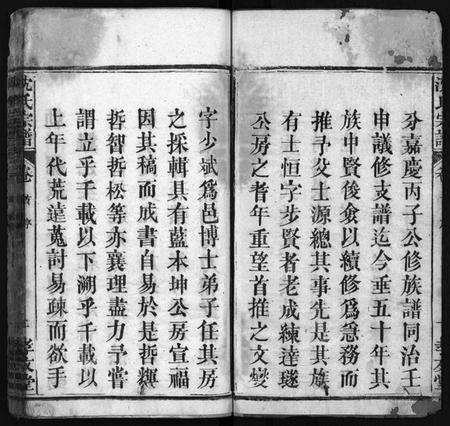 分嘉慶丙子公修族譜同治壬
申議修支譜迄今垂五十年其
族中賢俊僉以續修爲急務而
推予父士源總其事先是其族
有士恒字步賢者老成練達璲
公房之耆年重望首推之文燮
字少斌爲邑博士弟子任其房
之採輯具有藍本坤公房宣福
因其稿而成書自易於是哲輿
哲智哲松等亦襄理盡力予嘗
謂立乎千載以下溯乎千載以
上年代荒遠蒐討易疎而欲手
沈氏宗譜